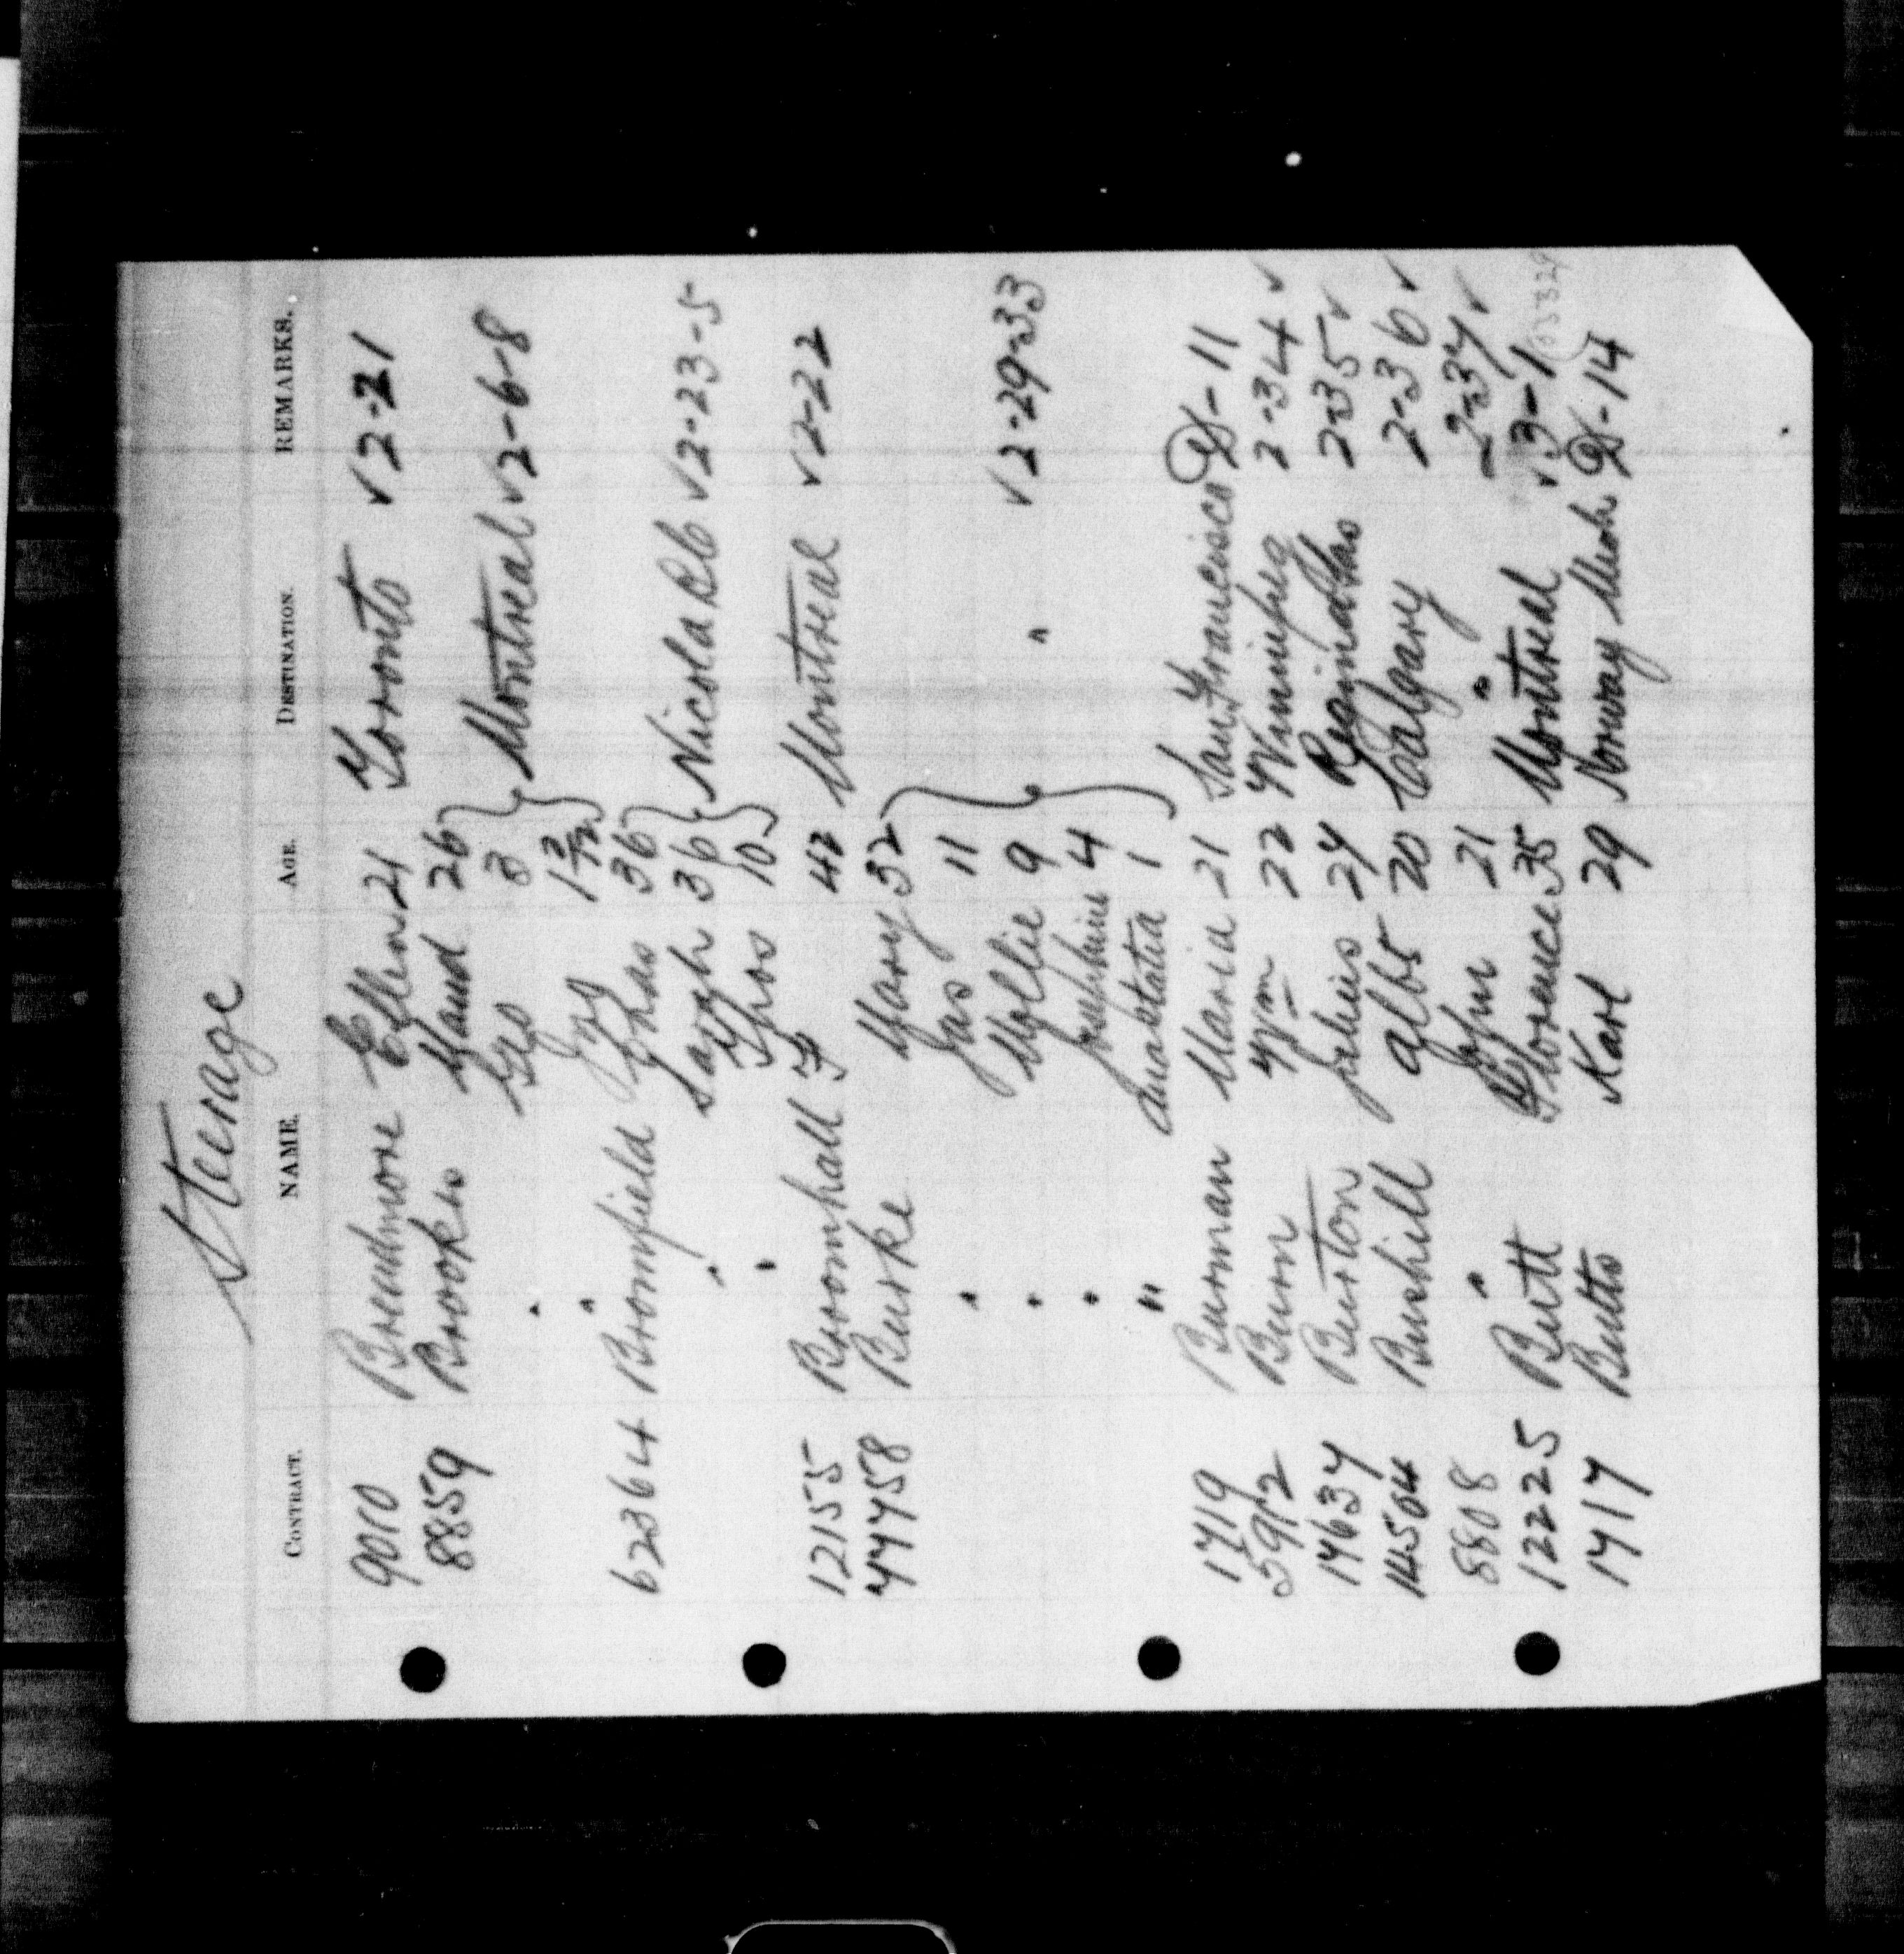 Steerage
CONTRACT. NAME. AGE. DESTINATION. REMARKS.
9010 Breadmore Ellen 21 Toronto √ 2-21
8859 Brookes Maud 26
" Geo 3 Montreal √ 2-6-8
" Jno 1 2/12
62364 Bromfield Chas 36
" Sarah 36 Nicola BC √ 2-23-5
" Thos 10
12155 Broomhall F 42 Montreal √ 2-22
77758 Burke Mary 32
" Jas 11
" Mollie 9 " √ 2-29-33
" Josephine 4
" Anastatia 1
1719 Burman Maria 21 San Francisco -11
5912 Burn Wm 22 Winnipeg 2-34 √
17637 Burton Julius 27 Regina Sas 2-35 √
14504 Bushill Albt 20 Calgary 2-36 √
8808 " John 21 " 2-37 √
12225 Butt Florence 35 Montreal √ 3-1
1717 Butts Karl 29 Norway Mich -14